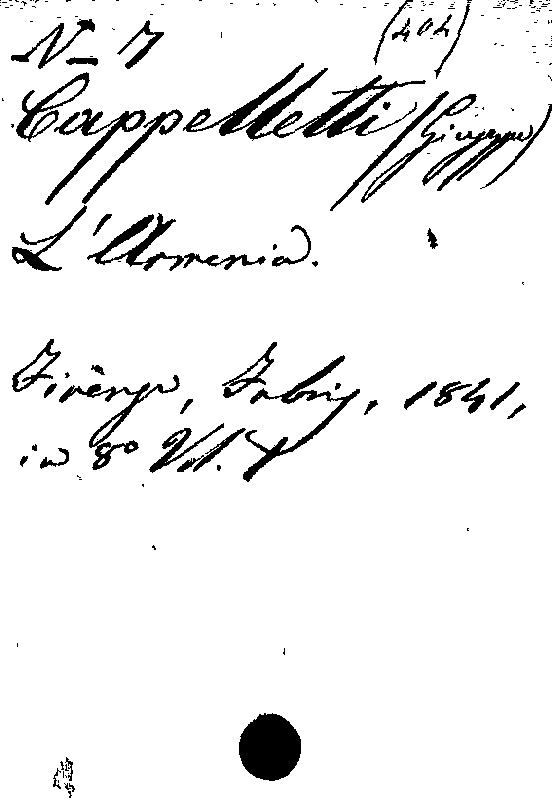 No 7 (404)
Cappelletti (Giuseppe)
L'Armenia.
Firenze, Fabrig, 1841,
in 8° Vol.